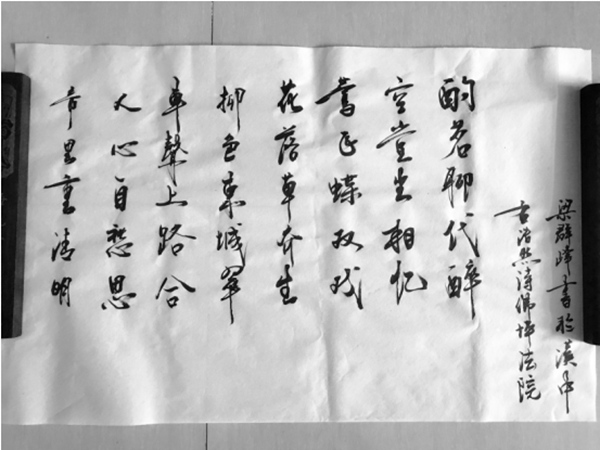 帝里重清明
人心自愁思
車聲上路合
柳色東城翠
花落草齐生
莺飞蝶双戏
空堂坐相忆
酌茗聊代醉
右浩然诗佛坪法院
梁群峰書於漢中